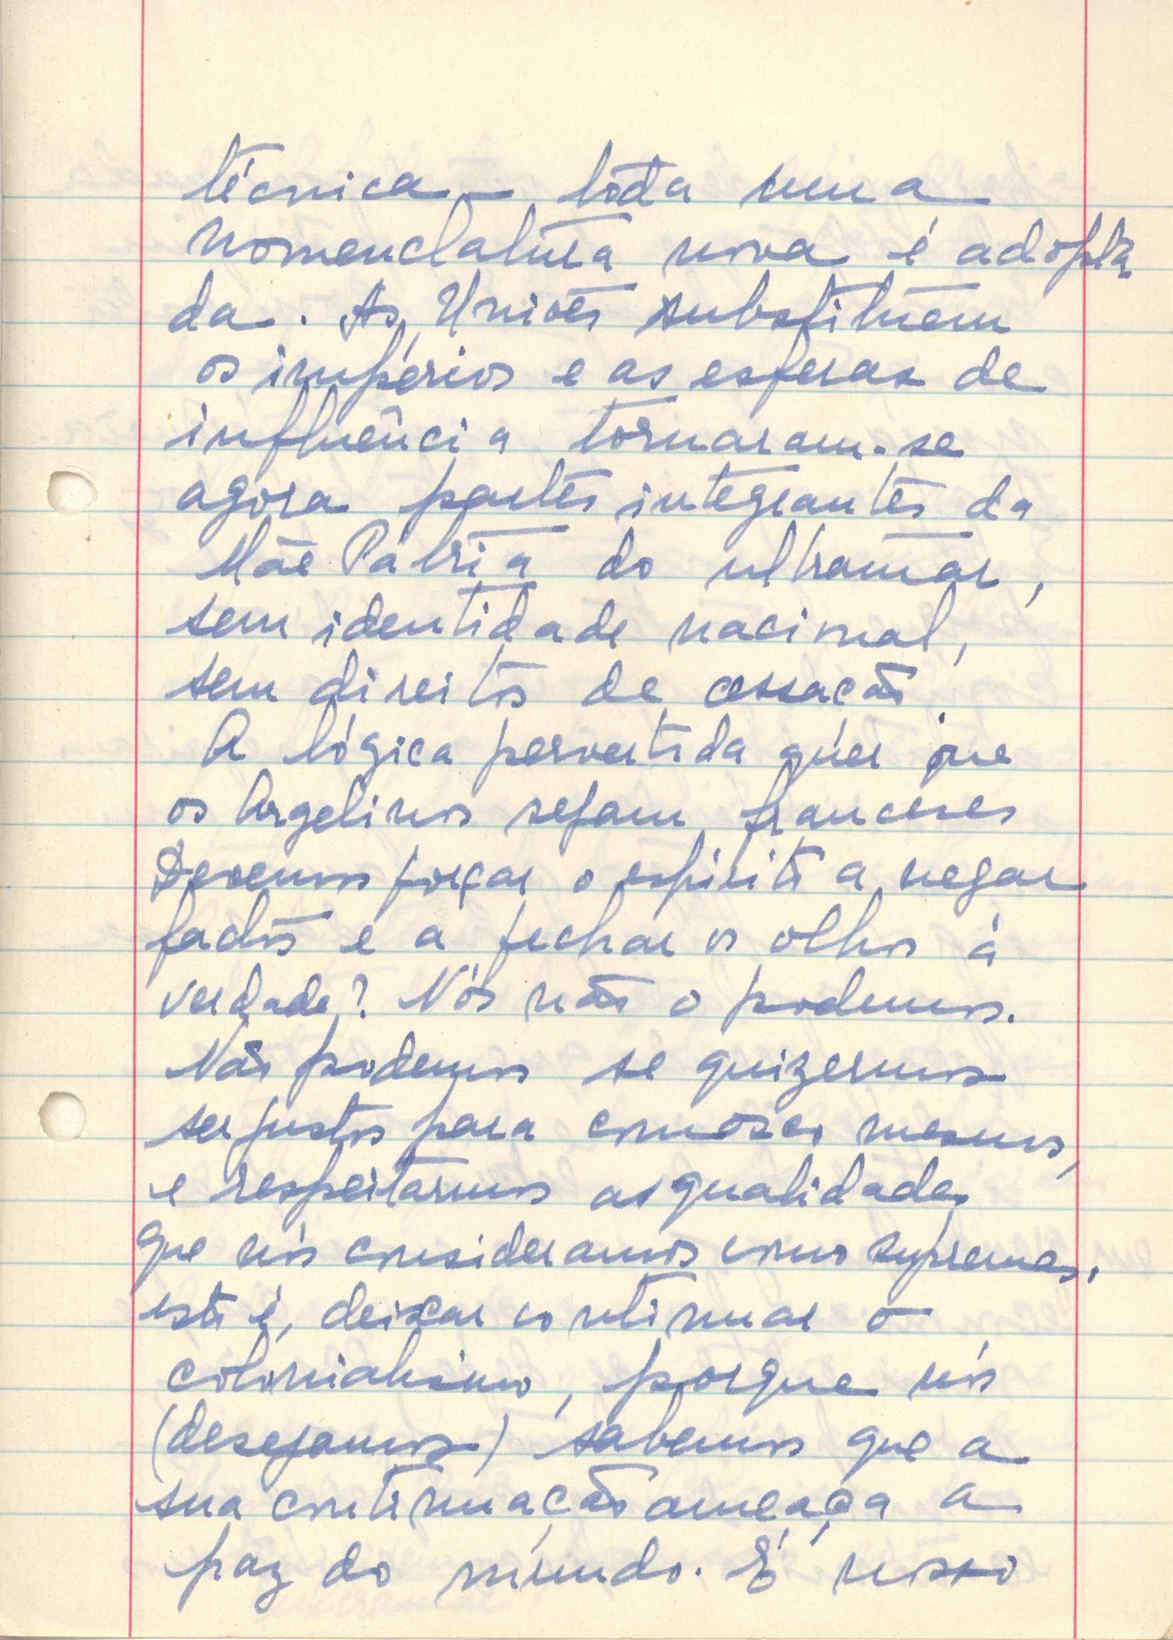 técnica – toda uma
nomenclatura nova é adopta
da. As Uniões substituem
os impérios e as esferas de
influência tornaram-se
agora partes integrantes da
Mãe Pátria do ultramar,
sem identidade nacional,
sem direitos de cessação.
A lógica pervertida quer que
os Argelinos sejam franceses
Devemos forçar o espírito a negar
factos e a fechar os olhos à
verdade? Nós não o podemos.
Não podemos se quizermos
ser justos para comnosco mesmos,
e respeitarmos as qualidades
que nós consideramos como supremas,
isto é, deixar continuar o
colonialismo, porque nós
(desejamos) sabemos que a
sua continuação ameaça a
paz do mundo. É nosso